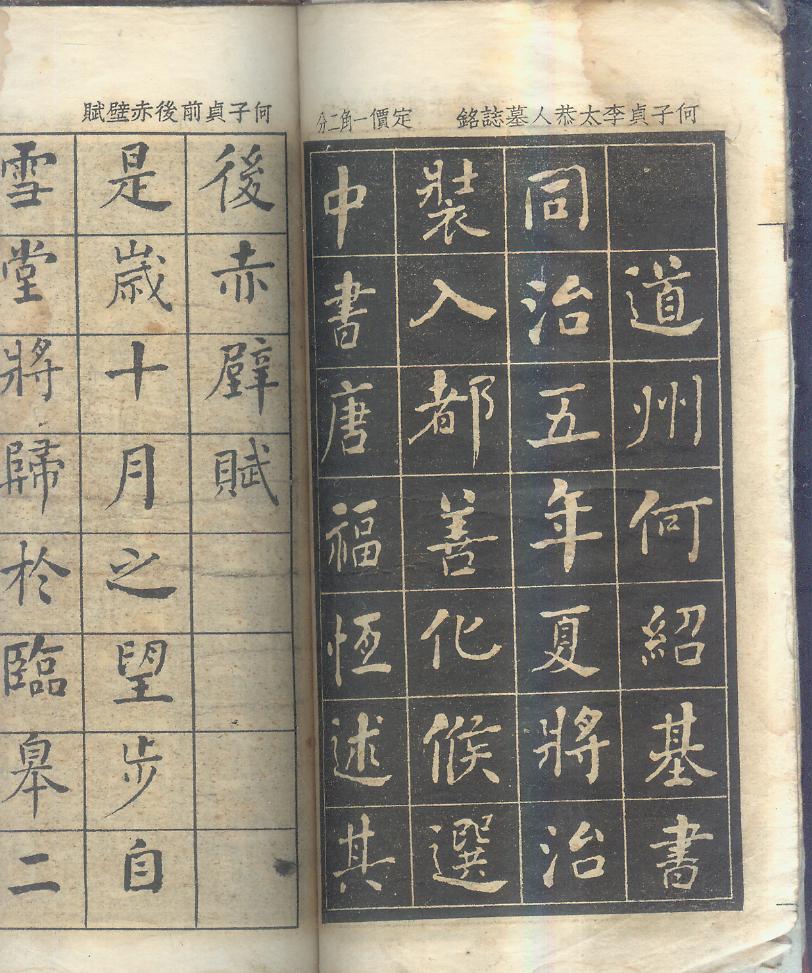 何子貞李太恭人墓誌銘 定價一角二分
道州何紹基書
同治五年夏將治
裝入都善化候選
中書唐福恆述其
何子貞前後赤壁賦
後赤壁賦
是歲十月之望步自
雪堂將歸於臨皋二